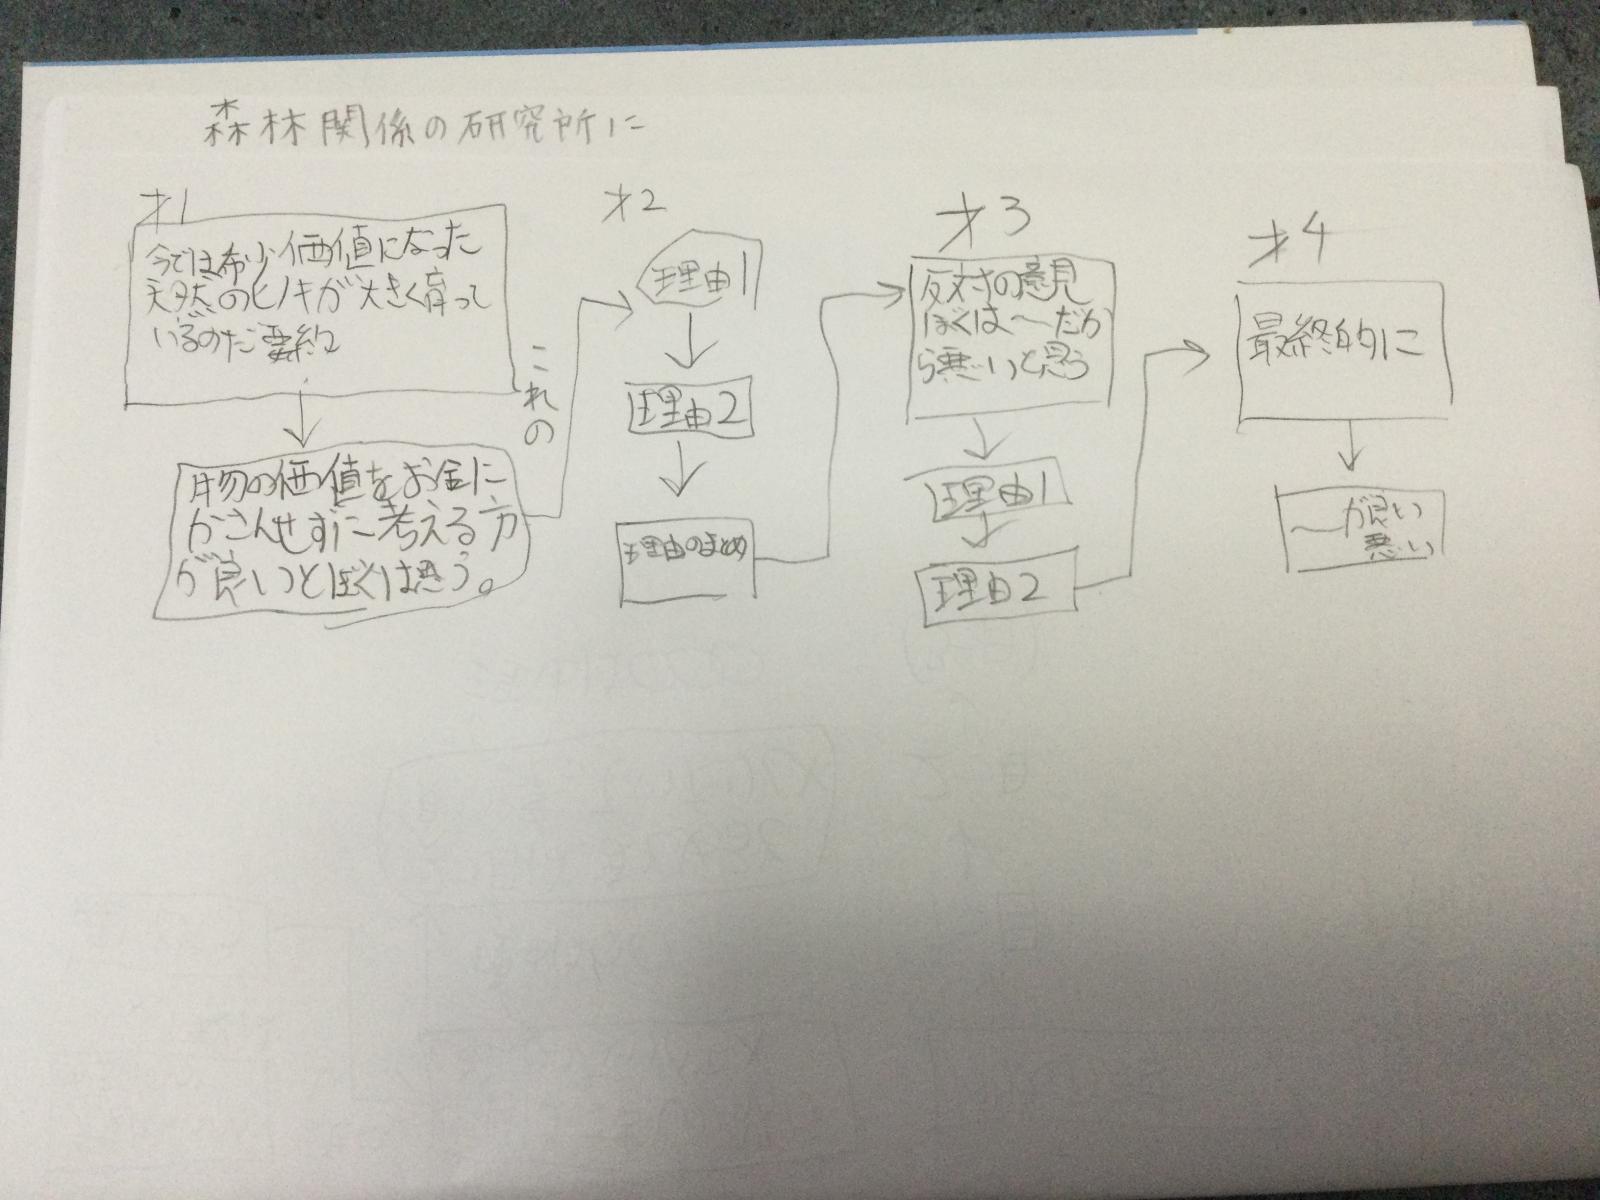 森林関係の研究所に
才1
今では希少価値になった
天然のヒノキが大きく育って
いるのだ 要約
物の価値をお金に
かさんせずに考える方
が良いとぼくは思う。
これの
才2
理由1
理由2
理由のまとめ
才3
反対の意見
ぼくは〜だか
ら悪いと思う
理由1
理由2
才4
最終的に
〜が良い
悪い